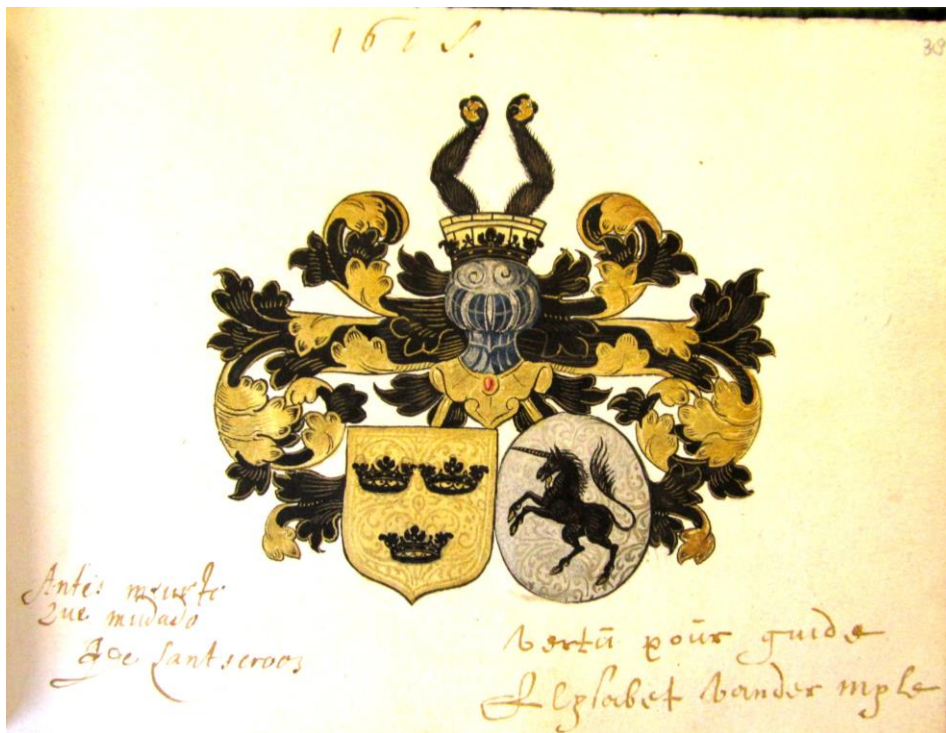 1615.
39
Antes muerto
Que mudado
Joe Lantscroon
Vertū poūr guide
Elysabet Vander myle